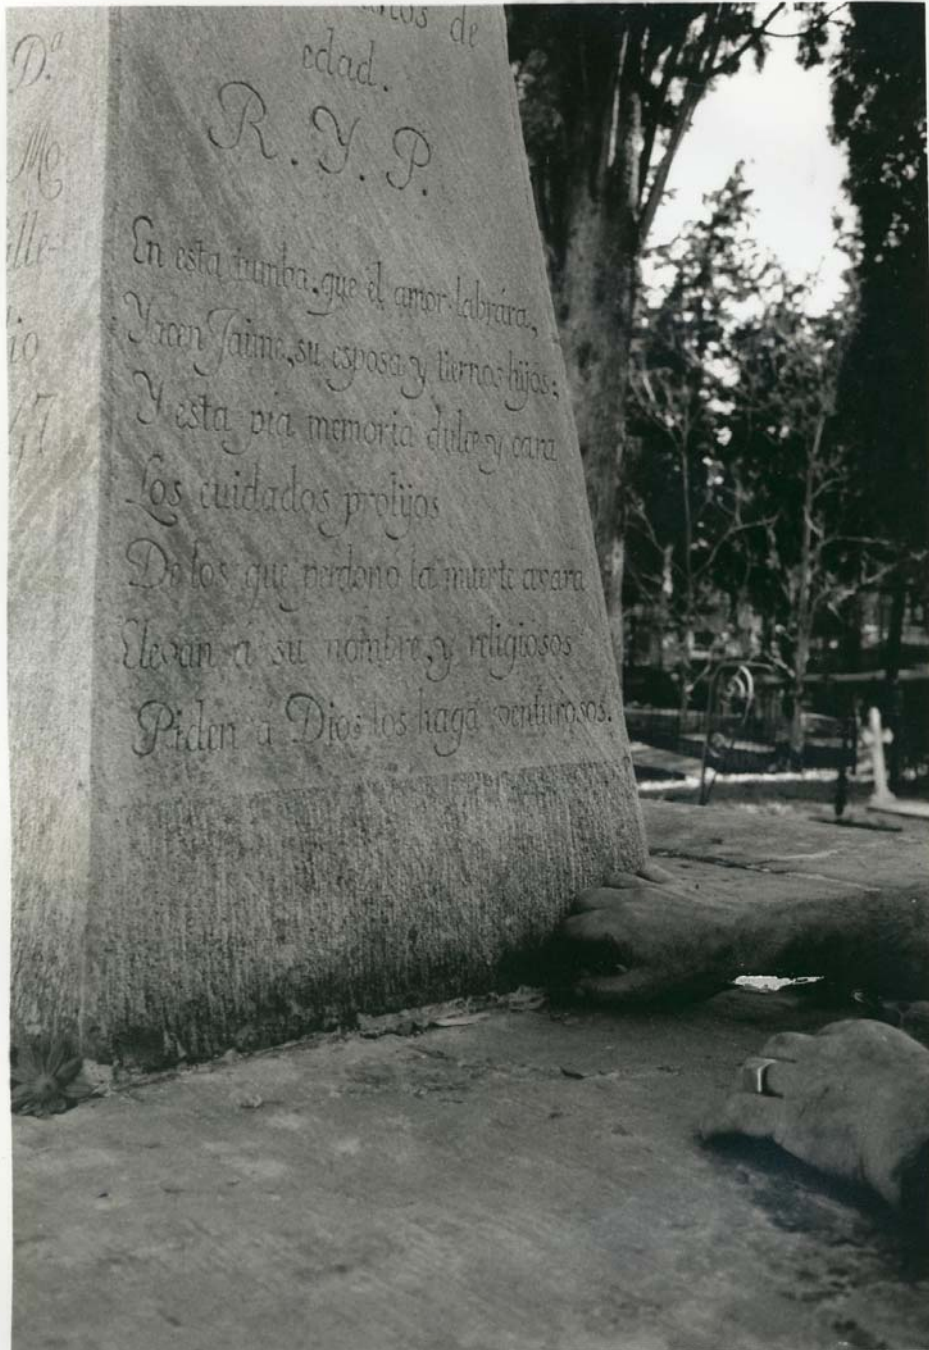 D.ª
Mo
ille-
io
47
años de
edad.
R. Y. P.
En esta tumba, que el amor labrára,
Yacen Jaime, su esposa y tiernos hijos;
Y esta pia memoria dulce y cara
Los cuidados prolijos
De los que perdonó la muerte avara
Elevan á su nombre, y religiosos
Piden á Dios los haga venturosos.